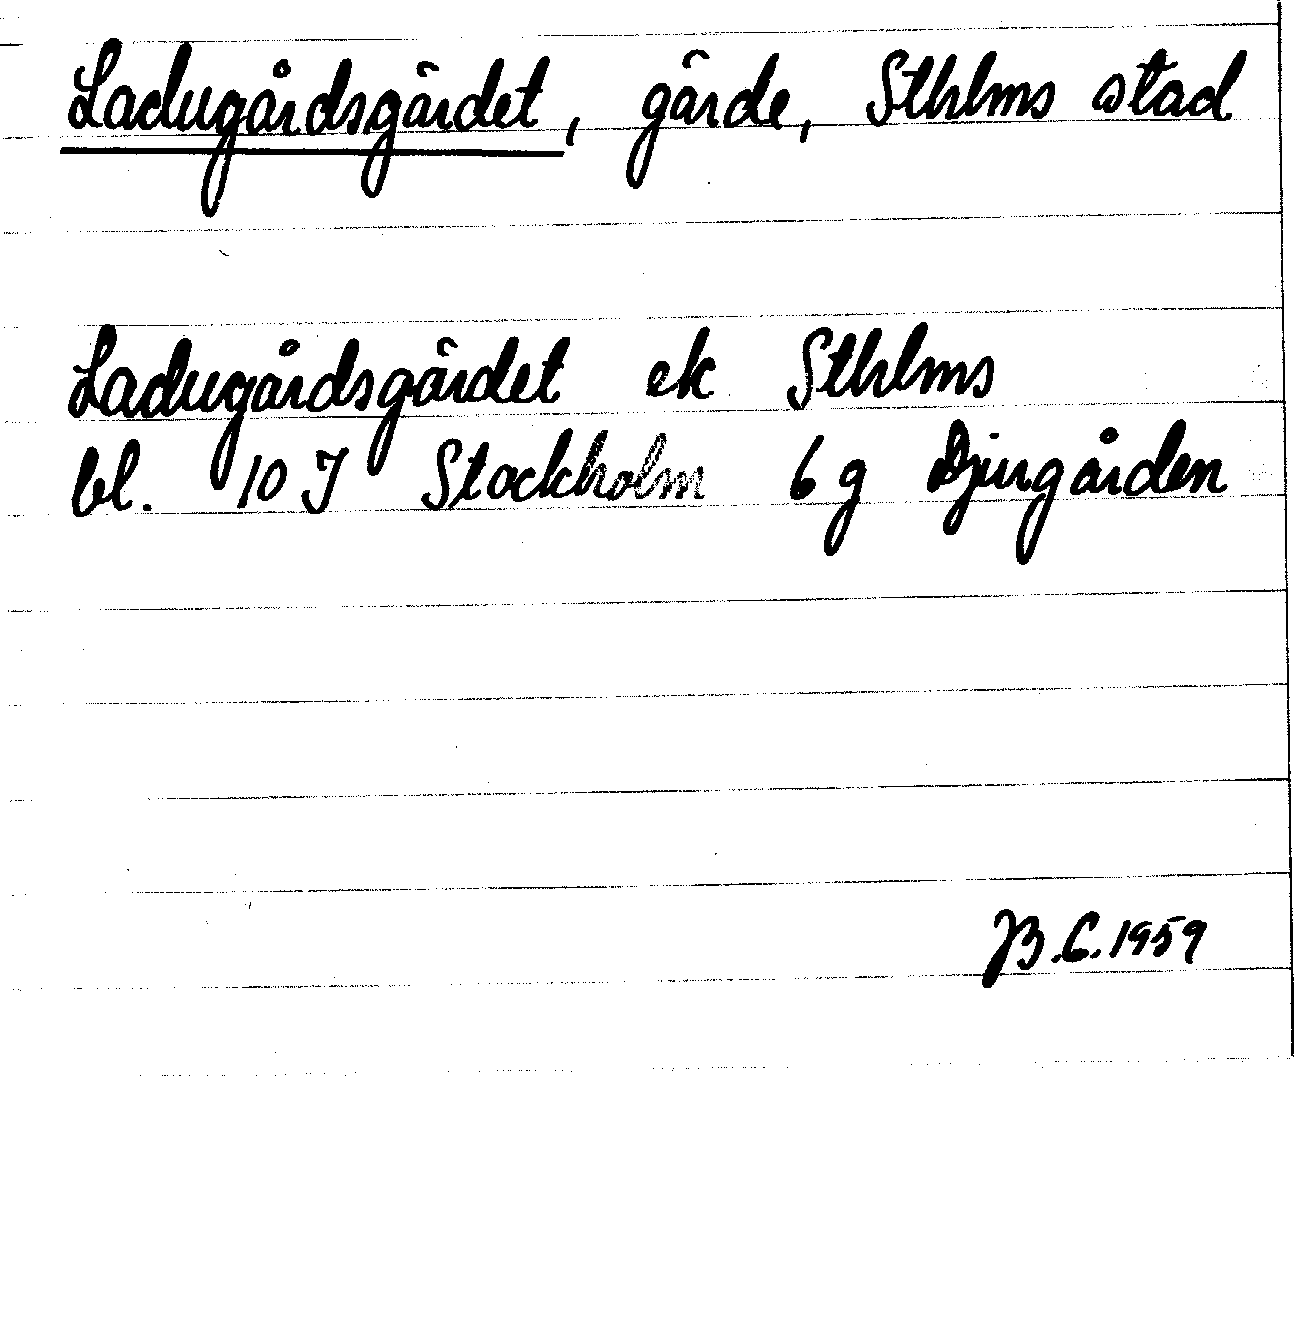 Ladugårdsgärdet, gärde, Sthlms stad
Ladugårdsgärdet ek Sthlms
bl. 10 I Stockholm 6 g Djurgården
B.C. 1959